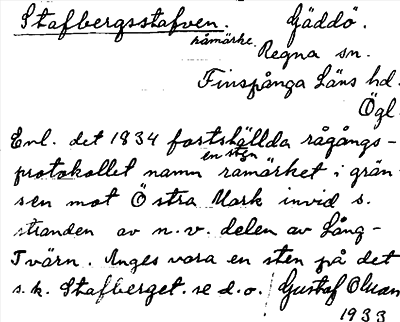 Stafbergsstafven. Gäddö.
råmärke. Regna sn.
Finspånga Läns hd.
Ögl.
Enl. det 1834 fastställda rågångs-
protokollet namn en sten råmärket i grän-
sen mot Östra Mark invid s.
stranden av n.v. delen av Lång-
Tvärn. Anges vara en sten på det
s.k. Stafberget. se d.o. Gustaf Olman
1933